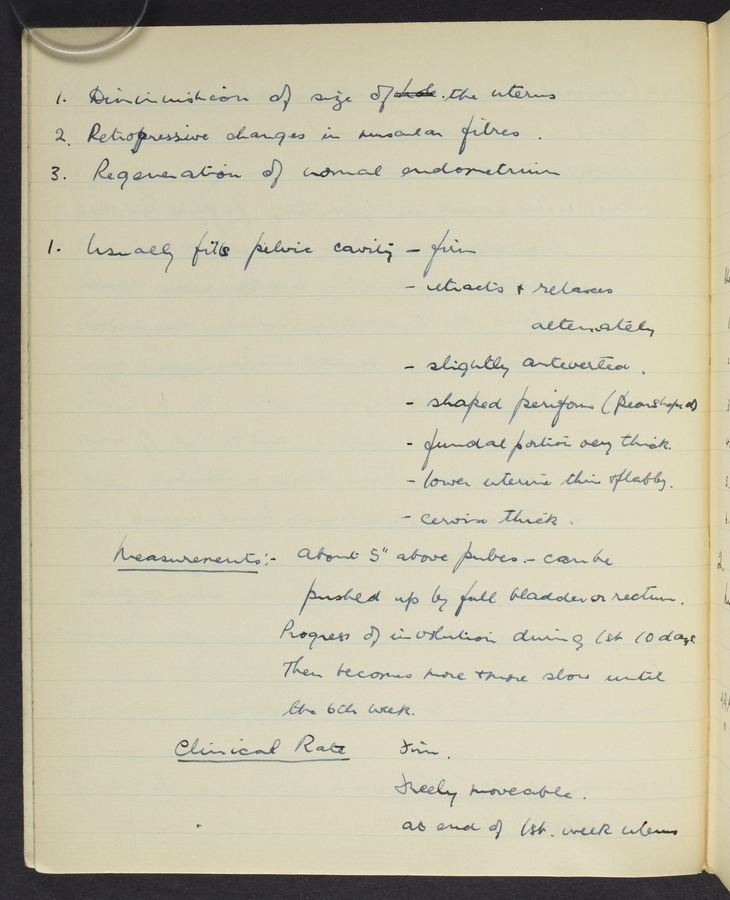 1. Diminishion of size of the uterus
2. Retrogressive changes in muscular fibres.
3. Regeneration of normal endometrium
1. Usually fills pelvic cavity - firm
- retracts & relaxes
alternately
- slightly anteverted.
- shaped periform (pearshaped)
- fundal portion very thick.
- lower uterine thin & flabby.
- cervix thick.
Measurements:- about 5" above pubes. - can be
pushed up by full bladder or rectum.
Progress of involution during 1st 10 days.
Then becomes more & more slow until
the 6th week.
Clinical Rate Firm.
Freely moveable.
at end of 1st. week uterus